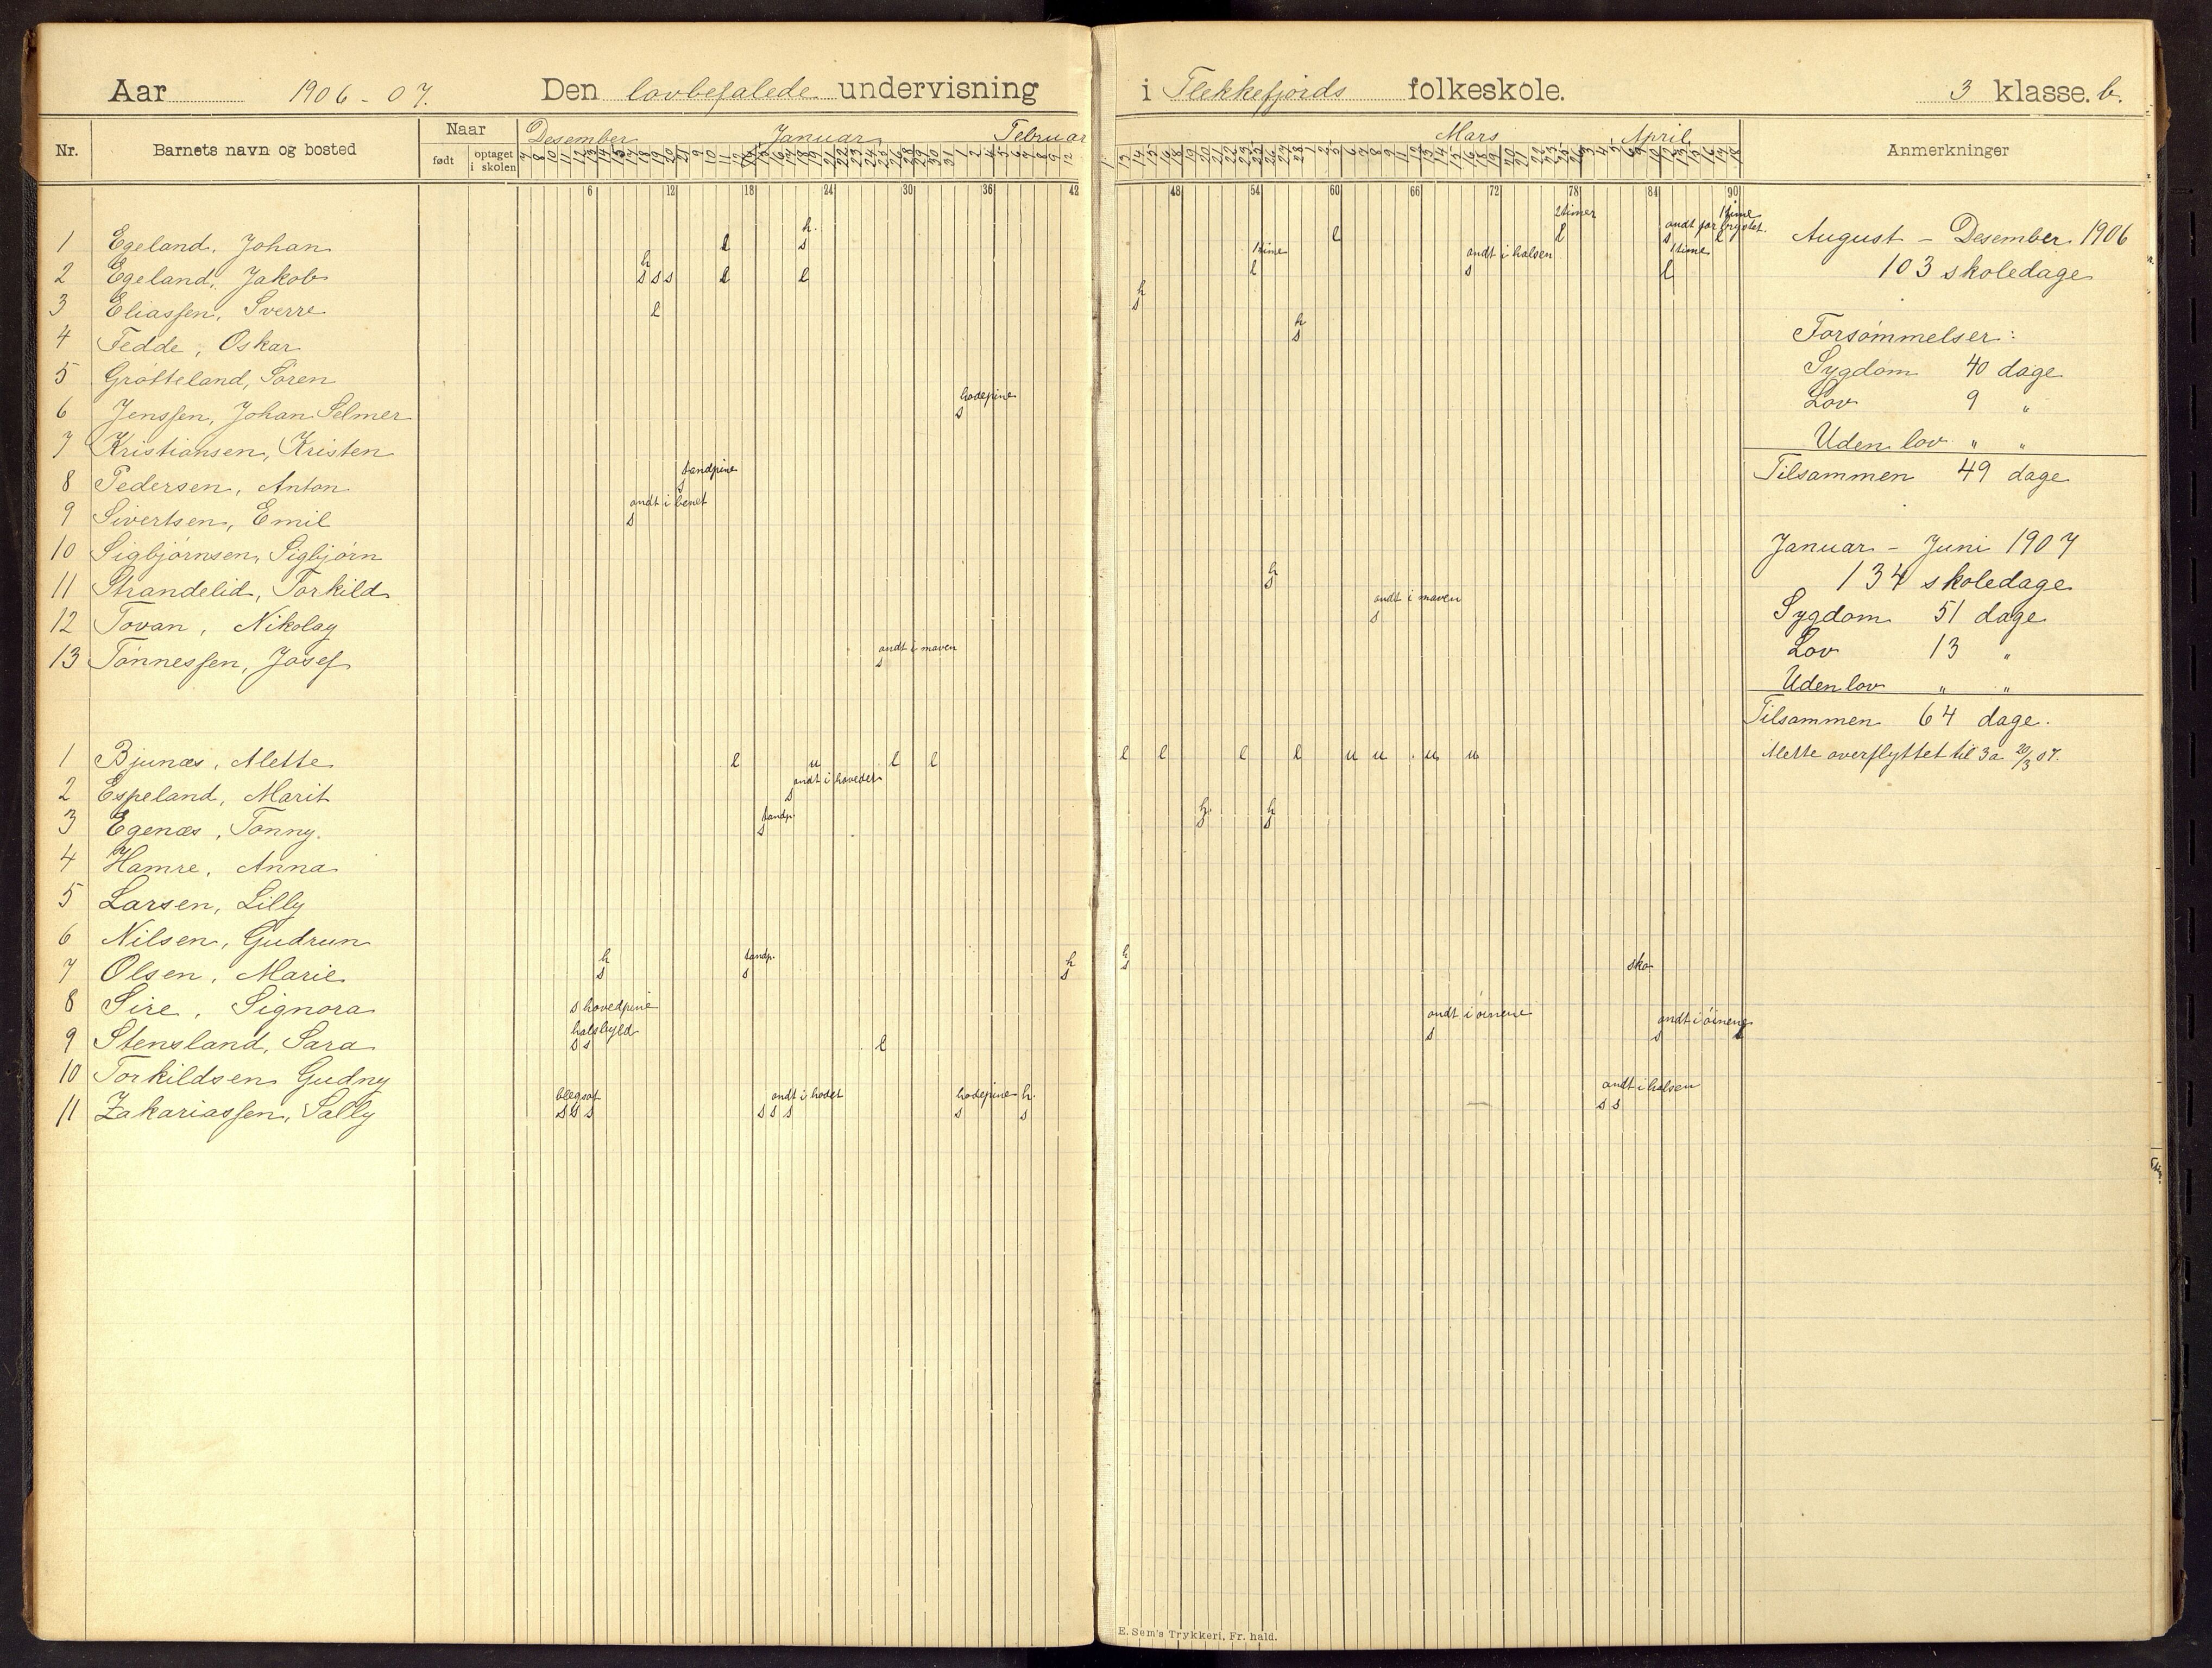 Aar 1906 - 07. Den lovbefalede undervisning i Flekkefjords folkeskole. 3 klasse. b.
Nr. Barnets navn og bosted Naar født optaget i skolen Desember Januar Februar Mars April Anmerkninger
6 12 18 24 30 36 42 48 54 60 66 72 78 84 90
h. 2 timer ondt for brystet. 1 time
1 Egeland, Johan l s l l s l
h 1 time ondt i halsen 1 time
2 Egeland, Jakob s s s l l l s l
h
3 Eliassen, Sverre l s
h
4 Fedde, Oskar s
5 Grøtteland, Søren
hodepine
6 Jenssen, Johan Selmer s
7 Kristiansen, Kristen
tandpine
8 Pedersen, Anton s
ondt i benet
9 Sivertsen, Emil s
10 Sigbjørnsen, Sigbjørn
h
11 Strandelid, Torkild s
ondt i maven
12 Tovan, Nikolay s
ondt i maven
13 Tønnessen, Josef s
1 Bjunæs, Mette l u l l l l l l u u u u
ondt i hovedet
2 Espeland, Marit s
tandp. h. h
3 Egenæs, Tonny. s s s
4 Hamre, Anna
5 Larsen, Lilly
6 Nilsen, Gudrun
h tandp. h h sko
7 Olsen, Marie s s s s
8 Sire, Signora s hovedpine
halsbyld ondt i øinene ondt i øinene
9 Stensland, Sara s s l s s
10 Torkildsen Gudny
blegsot ondt i hodet hodepine h. ondt i halsen
11 Zakariassen, Sally s s s s s s s s s s
August - Desember 1906
103 skoledage
Forsømmelser:
Sygdom 40 dage
Lov 9 "
Uden lov " "
Tilsammen 49 dage
Januar - Juni 1907
134 skoledage
Sygdom 51 dage
Lov 13 "
Uden lov " "
Tilsammen 64 dage.
Mette overflyttet til 3a 20/3 07.
E. Sem's Trykkeri, Fr. hald.